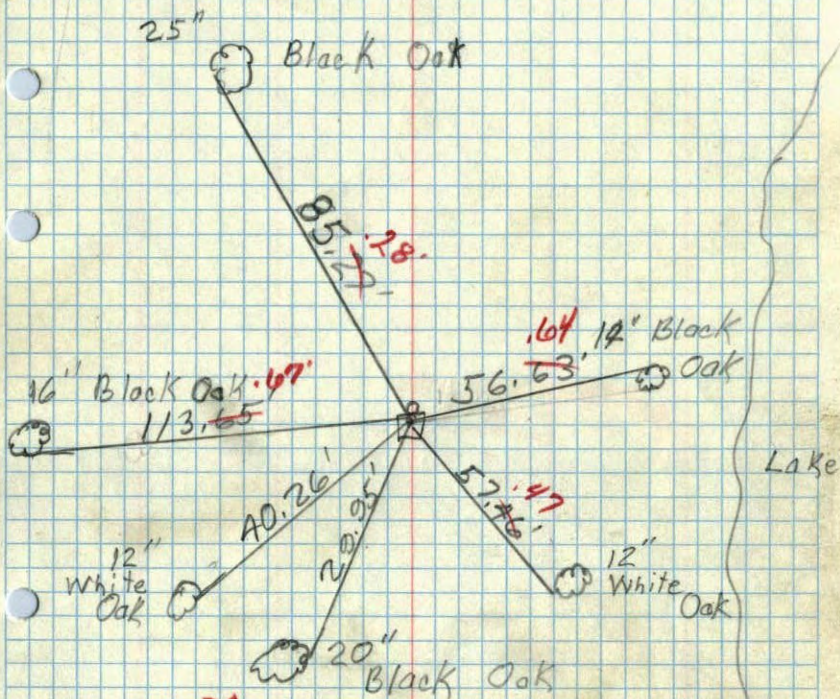 25" Black Oak
85.27' .28'
.64
56.63' 12" Black
Oak
16" Black Oak .67'
113.65'
Lake
40.26'
29.95'
57.46' .47
12"
White
Oak
12"
White Oak
20"
Black Oak